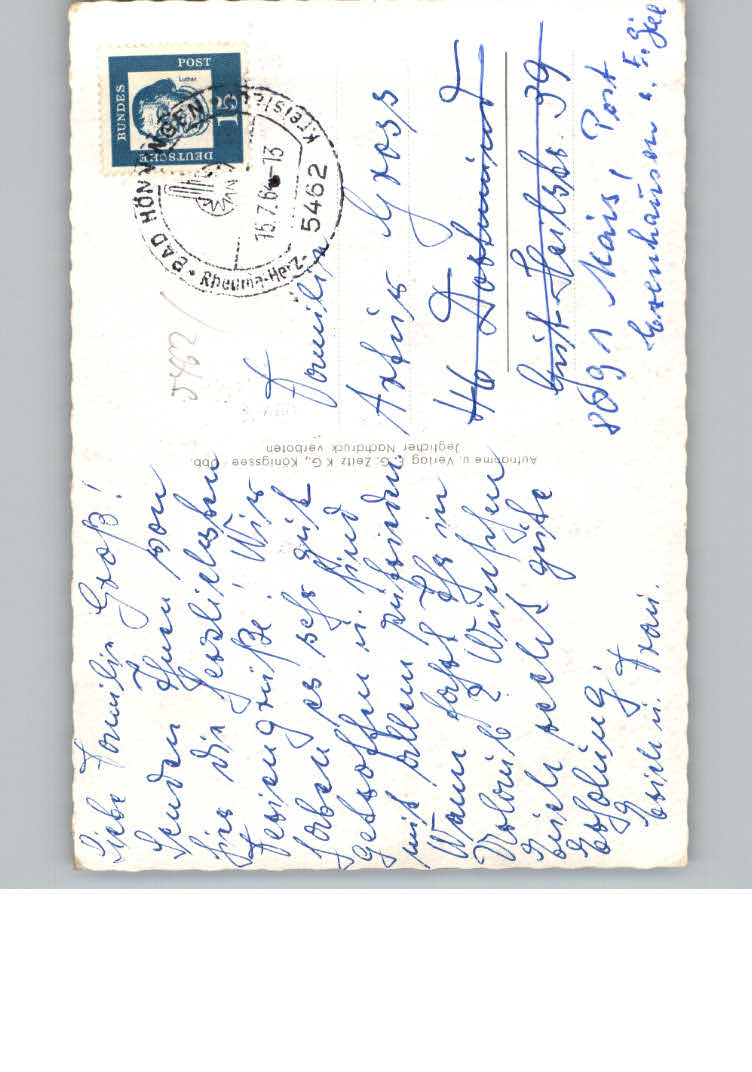 Liebe Familie Groß!
Senden Ihnen von
hier die herzlichsten
Feriengrüße! Wir
haben es sehr gut
getroffen u. sind
mit allem zufrieden.
Wann fahrt Ihr in
Urlaub? Wünschen
Euch recht gute
Erholung!
Erich u. Frau.
Aufnahme u. Verlag F. G. Zeitz K G., Königssee / Obb.
Jeglicher Nachdruck verboten
DEUTSCHE BUNDES POST
Luther
15
BAD HÖNNINGEN
5462
15.7.64-13
Rheuma-Herz-Kreislauf
5462
Familie
Artur Gross
46 Dortmund
39
8091 Mais, Post